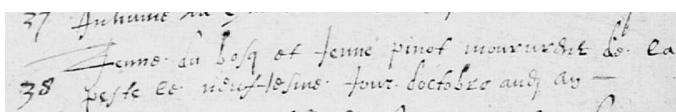 37
Jenne du bosq et Jenne pinot moururent de la
38 peste le neufiesme Jour doctobre audi an